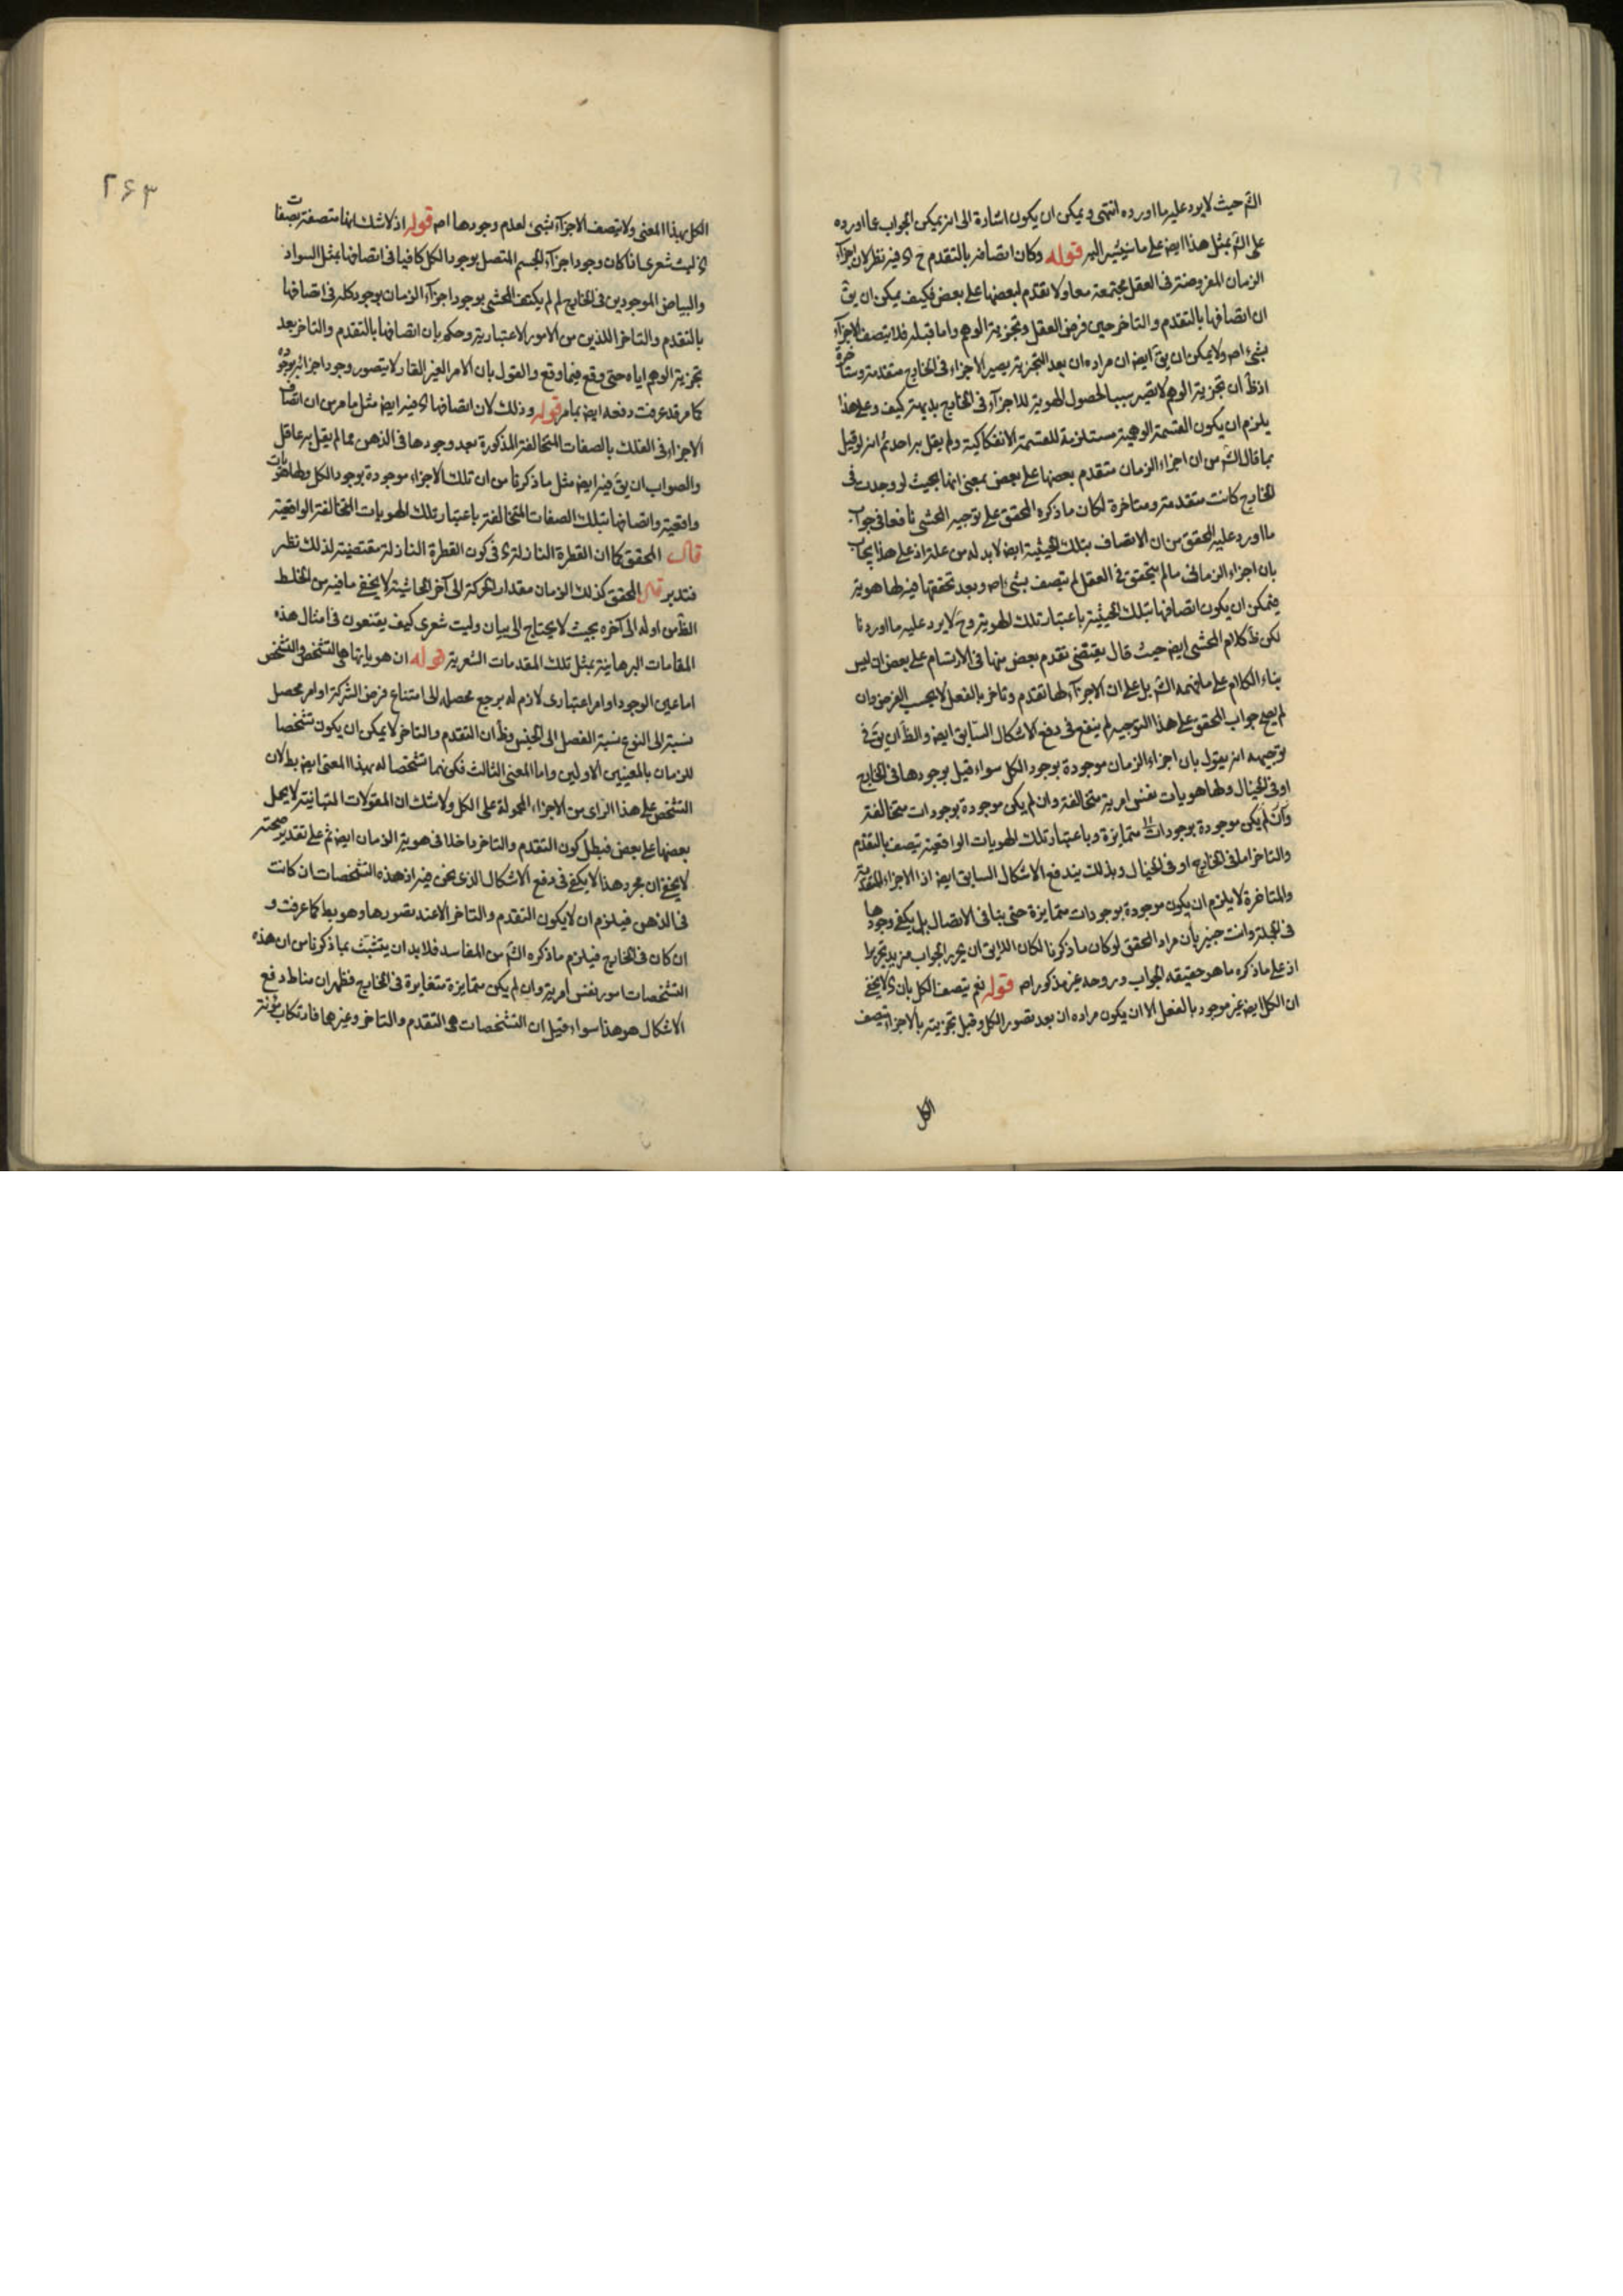 الشم حيث لا يرد عليه ما اورده انتهى ويمكن ان يكون اشارة الى انه يمكن الجواب عما اورده
على الشم بمثل هذا ايضا على ما سنشير اليه قوله وكان اتصافه بالتقدم ح اى فيه نظر لان اجزاء
الزمان المفروضة فى العقل مجتمعة معا ولا تقدم لبعضها على بعض فكيف يمكن ان يق
ان اتصافها بالتقدم والتاخر حين فرض العقل وتجزية الوهم واما قبله فلا يتصف الاجزاء
بشئ اصه ولا يمكن ان يق ايضا ان مراده ان بعد التجزية يصير الاجزاء فى الخارج متقدمة ومتاخرة
اذ ظ ان تجزية الوهم لا تصير سببا لحصول الهوية للاجزاء فى الخارج بديهة كيف وعلى هذا
يلزم ان يكون القسمة الوهمية مستلزمة للقسمة الانفكاكية ولم يقل به احد ثم انه لو قيل
بما قال الشم من ان اجزاء الزمان متقدم بعضها على بعض بمعنى انها بحيث لو وجدت فى
الخارج كانت متقدمة ومتاخرة لكان ما ذكره المحقق على توجيه المحشى نافعا فى جواب
ما اورد عليه المحقق من ان الاتصاف بتلك الحيثية ايضا لا بد له من علة اذ على هذا يجاب
بان اجزاء الزمان ما لم يتحقق فى العقل لم يتصف بشئ اصه وبعد تحققها فيه لها هوية
فيمكن ان يكون اتصافها بتلك الحيثية باعتبار تلك الهوية وح لا يرد عليه ما اوردنا
لكن ظ كلام المحشى ايضا حيث قال يقتضى تقدم بعض منها فى الارتسام على بعض ان ليس
بناء الكلام على ما فهمه الشم بل على ان الاجزاء لها تقدم وتاخر بالفعل لا بحسب الفرض وان
لم يصح جواب المحقق على هذا التوجيه لم ينفع فى دفع الاشكال السابق ايضا والظ ان يق فى
توجيهه انه يقول بان اجزاء الزمان موجودة بوجود الكل سواء قيل بوجودها فى الخارج
او فى الخيال ولها هويات نفس امرية متخالفة وان لم يكن موجودة بوجودات متخالفة
وان لم يكن موجودة بوجودات متمايزة وباعتبار تلك الهويات الواقعية تتصف بالتقدم
والتاخر اما فى الخارج او فى الخيال وبذلك يندفع الاشكال السابق ايضا اذ الاجزاء المتقدمة
والمتاخرة لا يلزم ان يكون موجودة بوجودات متمايزة حتى ينافى الاتصال بل يكفى وجودها
فى الجملة وانت خبير بان مراد المحقق لو كان ما ذكرنا لكان اللايق ان يحرر الجواب مزيد تحرير
اذ على ما ذكره ما هو حقيقة الجواب وروحه غير مذكور اصه قوله نعم يتصف الكل بان اى لا يخفى
ان الكل ايضا غير موجود بالفعل الا ان يكون مراده ان بعد تصور الكل وقبل تجزيته بالاجزاء يتصف
الكل
٢٤٣
الكل بهذا المعنى ولا يتصف الاجزاء بشئ لعدم وجودها اصه قوله اذ لا شك انها متصفة بصفات
اى ليت شعرى اذا كان وجود اجزاء الجسم المتصل بوجود الكل كافيا فى اتصافها بمثل السواد
والبياض الموجودين فى الخارج لم لم يكتف المحشى بوجود اجزاء الزمان بوجود كله فى اتصافها
بالتقدم والتاخر اللذين من الامور الاعتبارية وحكم بان اتصافها بالتقدم والتاخر بعد
تجزية الوهم اياه حتى وقع فيما وقع والقول بان الامر الغير القار لا يتصور وجود اجزائه بوجوده
كما مر قد عرفت دفعه ايضا بما مر قوله وذلك لان اتصافها اى فيه ايضا مثل ما مر من ان اتصاف
الاجزاء فى الفلك بالصفات المتخالفة المذكورة بعد وجودها فى الذهن مما لم يقل به عاقل
والصواب ان يق فيه ايضا مثل ما ذكرنا من ان تلك الاجزاء موجودة بوجود الكل ولها هويات
واقعية واتصافها بتلك الصفات المتخالفة باعتبار تلك الهويات المتخالفة الواقعية
قال المحقق كما ان القطرة النازلة اى فى كون القطرة النازلة مقتضية لذلك نظر
فتدبر قال المحقق كذلك الزمان مقدار الحركة الى آخر الحاشية لا يخفى ما فيه من الخلط
الظ من اوله الى آخره بحيث لا يحتاج الى بيان وليت شعرى كيف يقتنعون فى امثال هذه
المقامات البرهانية بمثل تلك المقدمات الشعرية قوله ان هوياتها هى التشخص والتشخص
اما عين الوجود او امر اعتبارى لازم له يرجع محصله الى امتناع فرض الشركة او امر محصل
نسبته الى النوع نسبة الفصل الى الجنس وظ ان التقدم والتاخر لا يمكن ان يكون تشخصا
للزمان بالمعنيين الاولين واما المعنى الثالث فكونهما تشخصا له بهذا المعنى ايضا بط لان
التشخص على هذا الراى من الاجزاء المحمولة على الكل ولا شك ان المقولات المتباينة لا يحمل
بعضها على بعض فبطل كون التقدم والتاخر داخلا فى هوية الزمان ايضا ثم على تقدير صحته
لا يخفى ان مجرد هذا لا يكفى فى دفع الاشكال الذى نحن فيه اذ هذه التشخصات ان كانت
فى الذهن فيلزم ان لا يكون التقدم والتاخر الا عند تصورها وهو بط كما عرفت و
ان كان فى الخارج فيلزم ما ذكره الشم من المفاسد فلا بد ان يتشبث بما ذكرنا من ان هذه
التشخصات امور نفس امرية وان لم يكن متمايزة متغايرة فى الخارج فظهر ان مناط دفع
الاشكال هو هذا سواء قيل ان التشخصات هى التقدم والتاخر وغيرهما فارتكاب مؤنة